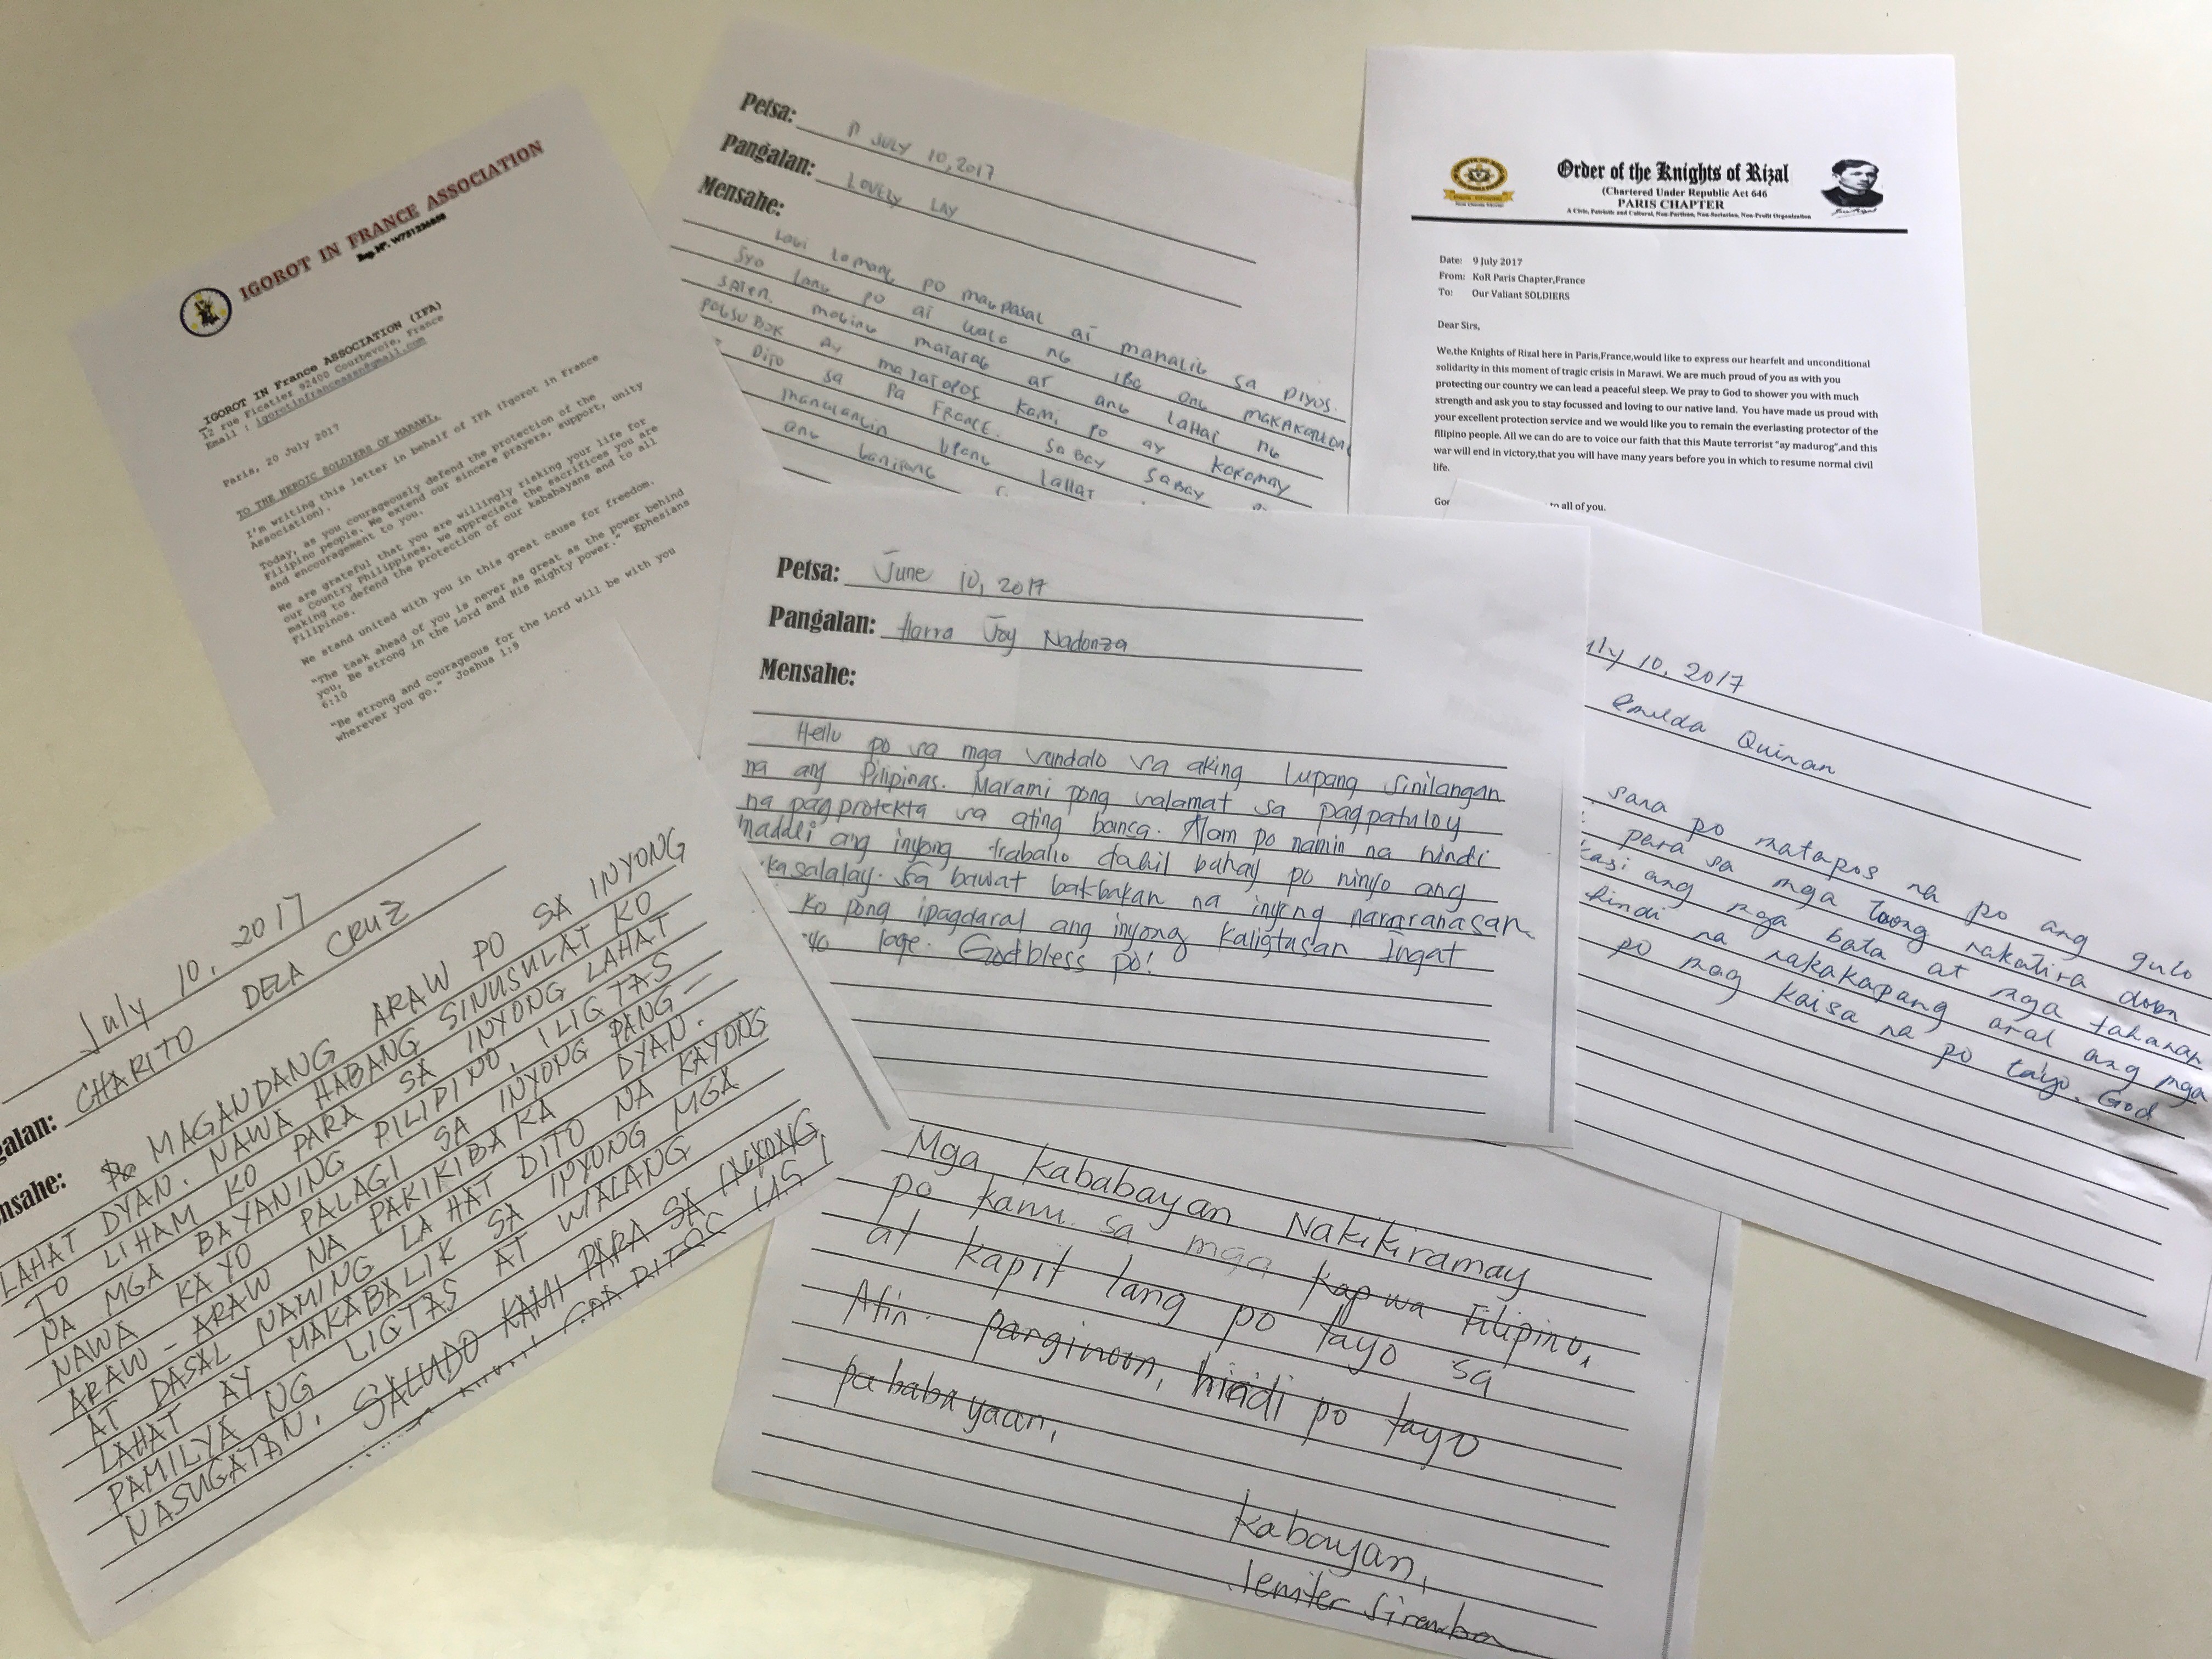 IGOROT IN FRANCE ASSOCIATION
IGOROT IN France ASSOCIATION (IFA)
12 rue Ficatier 92400 Courbevoie, France
Email : igorotinfranceassn@gmail.com
Paris, 20 July 2017
TO THE HEROIC SOLDIERS OF MARAWI,
I'm writing this letter in behalf of IFA (Igorot in France
Association).
Today, as you courageously defend the protection of the
Filipino people. We extend our sincere prayers, support, unity
and encouragement to you.
We are grateful that you are willingly risking your life for
our Country Philippines, we appreciate the sacrifices you are
making to defend the protection of our kababayans and to all
Filipinos.
We stand united with you in this great cause for freedom.
"The task ahead of you is never as great as the power behind
you, Be strong in the Lord and His mighty power." Ephesians
6:10
"Be strong and courageous for the Lord will be with you
wherever you go." Joshua 1:9
Petsa: JULY 10, 2017
Pangalan: LOVELY LAY
Mensahe:
po magpasal at manalig sa Diyos.
lang po at wala ng iba ang
saten. maging matatag at ang lahat ng
pagsubok ay matatapos kami po ay
Dito sa Pa France. sabay sabay
manalangin upang lahat
ang
Order of the Knights of Rizal
(Chartered Under Republic Act 646
PARIS CHAPTER
A Civic, Patriotic and Cultural, Non-Partisan, Non-Sectarian, Non-Profit Organization
Date: 9 July 2017
From: KoR Paris Chapter,France
To: Our Valiant SOLDIERS
Dear Sirs,
We,the Knights of Rizal here in Paris,France,would like to express our hearfelt and unconditional
solidarity in this moment of tragic crisis in Marawi. We are much proud of you as with you
protecting our country we can lead a peaceful sleep. We pray to God to shower you with much
strength and ask you to stay focussed and loving to our native land. You have made us proud with
your excellent protection service and we would like you to remain the everlasting protector of the
filipino people. All we can do are to voice our faith that this Maute terrorist "ay madurog",and this
war will end in victory,that you will have many years before you in which to resume normal civil
life.
all of you.
Petsa: June 10, 2017
Pangalan: Harra Joy Nadonza
Mensahe:
Hello po sa mga sundalo sa aking lupang sinilangan
na ang Pilipinas. Marami pong salamat sa pagpatuloy
na pagprotekta sa ating bansa. Alam po namin na hindi
madali ang inyong trabaho dahil buhay po ninyo ang
kasalalay. Sa bawat bakbakan na inyong nararanasan
ko pong ipagdaral ang inyong kaligtasan Ingat
lage. Godbless po!
10, 2017
Quinan
sana po matapos na po ang gulo
para sa mga taong nakatira doon
kasi ang mga bata at mga tahanan
hindi na nakakapang aral ang mga
po mag kaisa na po tayo. God
July 10, 2017
CHARITO DELA CRUZ
MAGANDANG ARAW PO SA INYONG
LAHAT DYAN. NAWA HABANG SINUSULAT KO
TO LIHAM KO PARA SA INYONG LAHAT
NA MGA BAYANING PILIPINO, ILIGTAS
NAWA KAYO PALAGI SA INYONG PANG-
ARAW-ARAW NA PAKIKIBAKA DYAN.
AT DASAL NAMING LAHAT DITO NA KAYONG
LAHAT AY MAKABALIK SA INYONG MGA
PAMILYA NG LIGTAS AT WALANG
NASUGATAN. SALUDO KAMI PARA SA INYONG
Mga kababayan Nakikiramay
po kami sa mga kapwa Filipino,
at kapit lang po tayo sa
Atin panginoon, hindi po tayo
pababayaan,
kabayan,